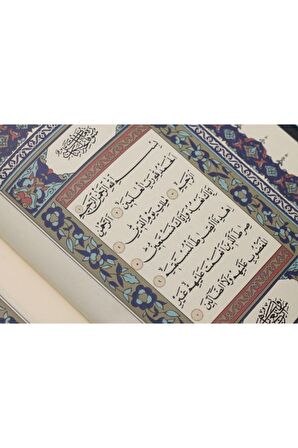 بِسْمِ اللّٰهِ الرَّحْمٰنِ الرَّحِيمِ
اَلْحَمْدُ لِلّٰهِ رَبِّ الْعَالَمِينَ الرَّحْمٰنِ
الرَّحِيمِ مَالِكِ يَوْمِ الدِّينِ
اِيَّاكَ نَعْبُدُ وَاِيَّاكَ نَسْتَعِينُ
اِهْدِنَا الصِّرَاطَ الْمُسْتَقِيمَ
صِرَاطَ الَّذِينَ اَنْعَمْتَ عَلَيْهِمْ غَيْرِ
الْمَغْضُوبِ عَلَيْهِمْ وَلَا الضَّالِّينَ